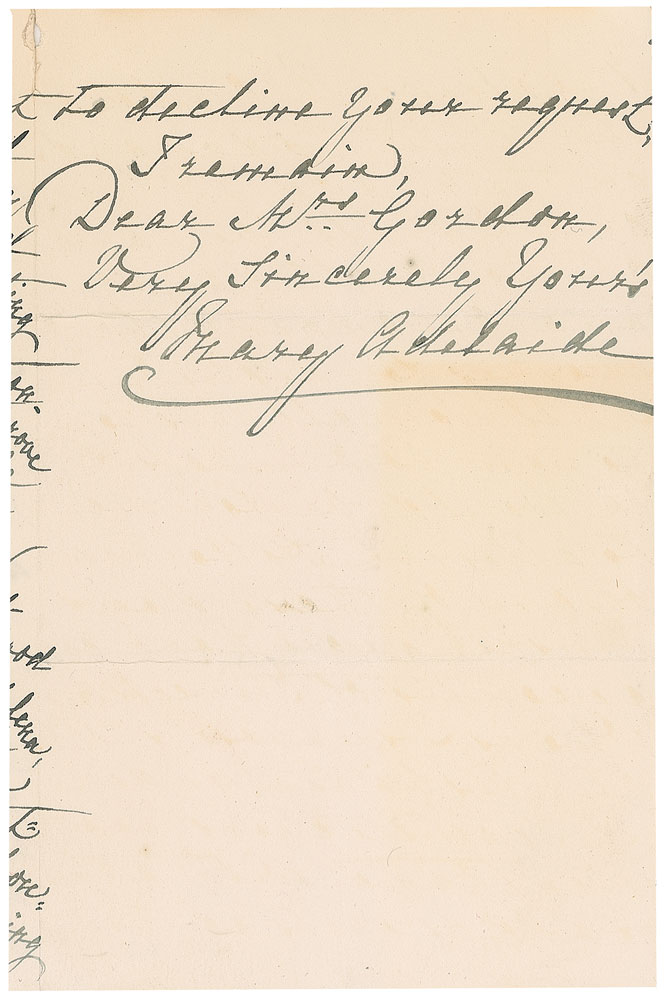 to decline your request,
I remain,
Dear Mrs Gordon,
Very Sincerely Your's
Mary Adelaide
ing
rove
ood
lena,
ing